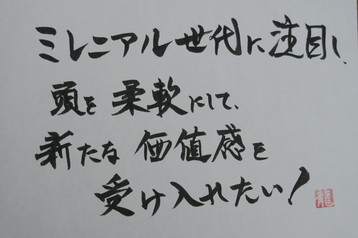 ミレニアル世代に注目し、
頭を柔軟にして、
新たな価値感を
受け入れたい!